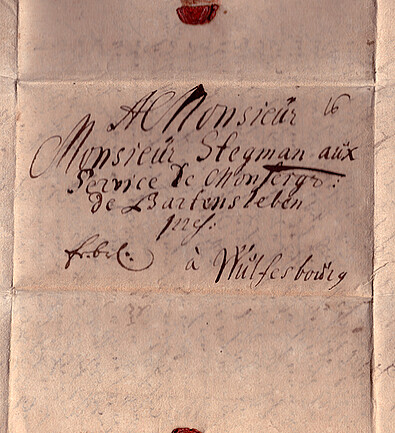 A Monsieur 16
Monsieur Stegman aux
Service de Monseigr:
de Bartensleben
à Wülfesbourg